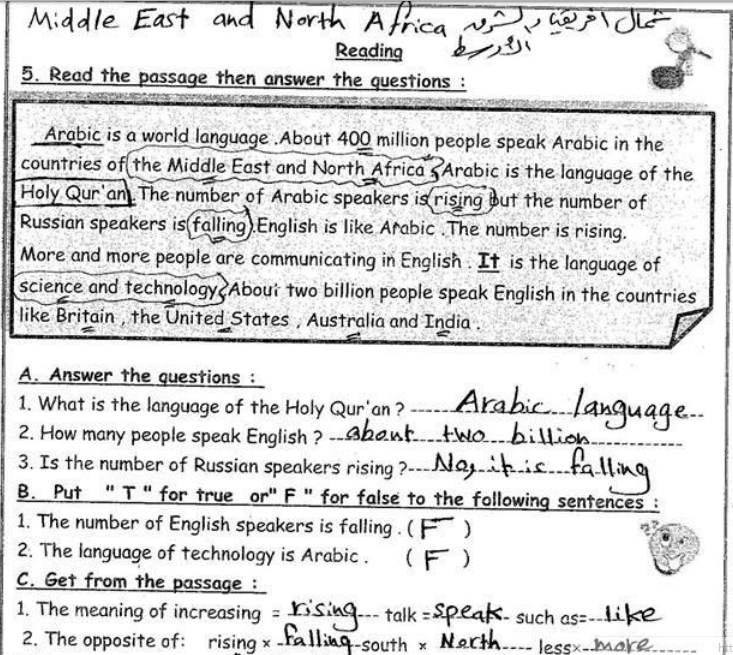 Middle East and North Africa شمال افريقيا و الشرق
الأوسط
Reading
5. Read the passage then answer the questions :
Arabic is a world language .About 400 million people speak Arabic in the
countries of the Middle East and North Africa .Arabic is the language of the
Holy Qur'an. The number of Arabic speakers is rising but the number of
Russian speakers is falling .English is like Arabic .The number is rising.
More and more people are communicating in English . It is the language of
science and technology. About two billion people speak English in the countries
like Britain , the United States , Australia and India .
A. Answer the questions :
1. What is the language of the Holy Qur'an ? Arabic language
2. How many people speak English ? about two billion
3. Is the number of Russian speakers rising ? No, it is falling
B. Put "T" for true or "F" for false to the following sentences :
1. The number of English speakers is falling . ( F )
2. The language of technology is Arabic . ( F )
C. Get from the passage :
1. The meaning of increasing = rising talk = speak such as= like
2. The opposite of: rising × falling south × North less× more